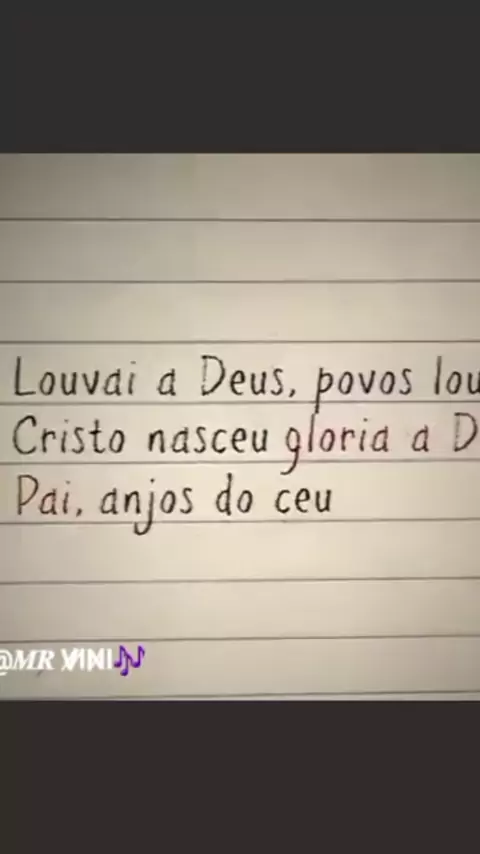 Louvai a Deus, povos lou
Cristo nasceu gloria a D
Pai, anjos do ceu
@MR VINI🎶